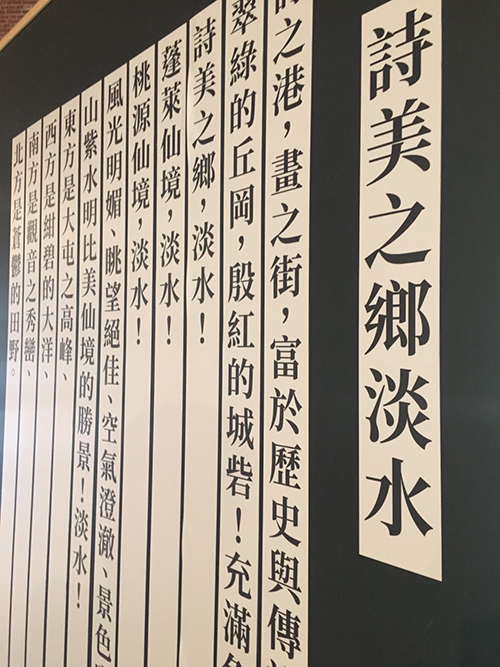 詩美之鄉淡水
之港，畫之街，富於歷史與傳
翠綠的丘岡，殷紅的城砦！充滿
詩美之鄉，淡水！
蓬萊仙境，淡水！
桃源仙境，淡水！
風光明媚、眺望絕佳、空氣澄澈、景色
山紫水明比美仙境的勝景！淡水！
東方是大屯之高峰、
西方是紺碧的大洋、
南方是觀音之秀巒、
北方是蒼鬱的田野。